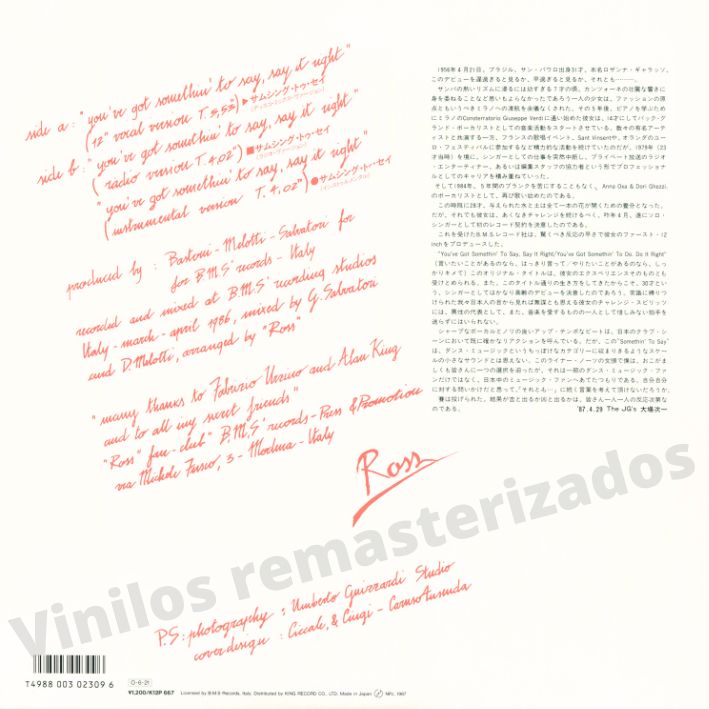 side a: "you've got somethin' to say, say it right"
(12" vocal version T. 5,53) ▶サムシング・トゥ・セイ
side b: "you've got somethin' to say, say it right"
(radio version T. 4,02") ■サムシング・トゥ・セイ
"you've got somethin' to say, say it right"
(instrumental version T. 4,02") ●サムシング・トゥ・セイ
produced by: Bastoni - Melotti - Salvatori for
for B.M.S' records - Italy
recorded and mixed at B.M.S' recording studios
Italy - march - april 1986, mixed by G. Salvatori
and D. Melotti, arranged by "Ross"
"many thanks to Fabrizio and Alan King
and to all my secret friends"
"Ross" fan-club" B.M.S' records - Press & Promotion
via Michele Fusco, 3 - Modena - Italy
Ross
P.S: photography: Umberto Guizzardi Studio
cover design: & Luigi -
1956年4月21日、ブラジル、サン・パウロ出身31才、本名ロザンナ・ギャラッソ。
このデビューを遅過ぎると見るか、早過ぎると見るか、それとも………。
サンバの熱いリズムに浸るには幼すぎる7才の頃、カンツォーネの壮麗な響きに
身を委ねることなど思いもよらなかったであろう一人の少女は、ファッションの原
点ともいうべきミラノへの渡航を余儀なくされた。その3年後、ピアノを学ぶため
にミラノのConsterratorio Giuseppe Verdi に通い始めた彼女は、14才にしてバック・グラ
ンド・ボーカリストとしての音楽活動をスタートさせている。数々の有名アーテ
ィストと共演する一方、フランスの歌唱イベント、Saint Vinsentや、オランダのユー
ロ・フェスティバルに参加するなど精力的な活動を続けていたのだが、1979年(23
才当時)を境に、シンガーとしての仕事を突然中断し、プライベート放送のラジオ
・エンターティナー、あるいは編集スタッフの協力者という形でプロフェッショナル
としてのキャリアを積み重ねていった。
そして1984年、5年間のブランクを苦にすることもなく、Anna Oxa & Dori Ghezzi、
のボーカリストとして、再び歌い始めたのである。
この時既に28才。与えられた水と土は全て一本の花が開くための養分となった。
だが、それでも彼女は、あくなきチャレンジを続けるべく、昨年4月、遂にソロ・
シンガーとして初のレコード契約を決意したのである。
これを受けたB.M.S.レコード社は、驚くべき反応の早さで彼女のファースト・12
inchをプロデュースした。
"You've Got Somethin' To Say, Say It Right/You've Got Somethin' To Do, Do It Right"
(言いたいことがあるのなら、はっきり言って/やりたいことがあるのなら、しっ
かりキメて)このオリジナル・タイトルは、彼女のエクスペリエンスそのものとも
受けとめられる。また、このタイトル通りの生き方をしてきたからこそ、30才とい
う、シンガーとしてはかなり高齢のデビューを決意したのであろう。常識に縛りつ
けられた我々日本人の目から見れば無謀とも思える彼女のチャレンジ・スピリッツ
には、男性の代表として、また、音楽を愛するものの一人として惜しみない拍手を
送らずにはいられない。
シャープなボーカルとノリの良いアップ・テンポなビートは、日本のクラブ・シ
ーンにおいて既に確かなリアクションを呼んでいる。だが、この"Somethin' To Say"
は、ダンス・ミュージックというちっぽけなカテゴリーに収まりきるようなスケー
ルの小さなサウンドとは思えない。このライナー・ノーツの文頭で僕は、おこがま
しくも皆さんに一つの選択を迫ったが、それは一部のダンス・ミュージック・ファ
ンだけではなく、日本中のミュージック・ファンへあてたつもりである。各自各々に
対する問いかけだと思って、"それとも…"に続く言葉を考えて頂けないだろうか。
賽は投げられた。結果が吉と出るか凶と出るかは、皆さん一人一人の反応次第な
のである。 '87.4.29 The JG's 大場次一
Vinilos remasterizados
T4988 003 02309 6
¥1,200/K12P 667 Licensed by B.M.S Records, Italy. Distributed by KING RECORD CO., LTD. Made in Japan 1987